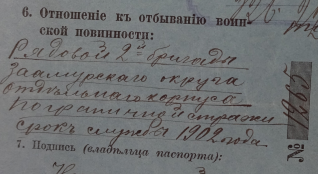 6. Отношеніе къ отбыванію воин-
ской повинности:
Рядовой 2й бригады
Заамурскаго округа
отдѣльнаго корпуса
Пограничной стражи
срокъ службы 1902 года
7. Подпись (владѣльца паспорта):
№ 1265